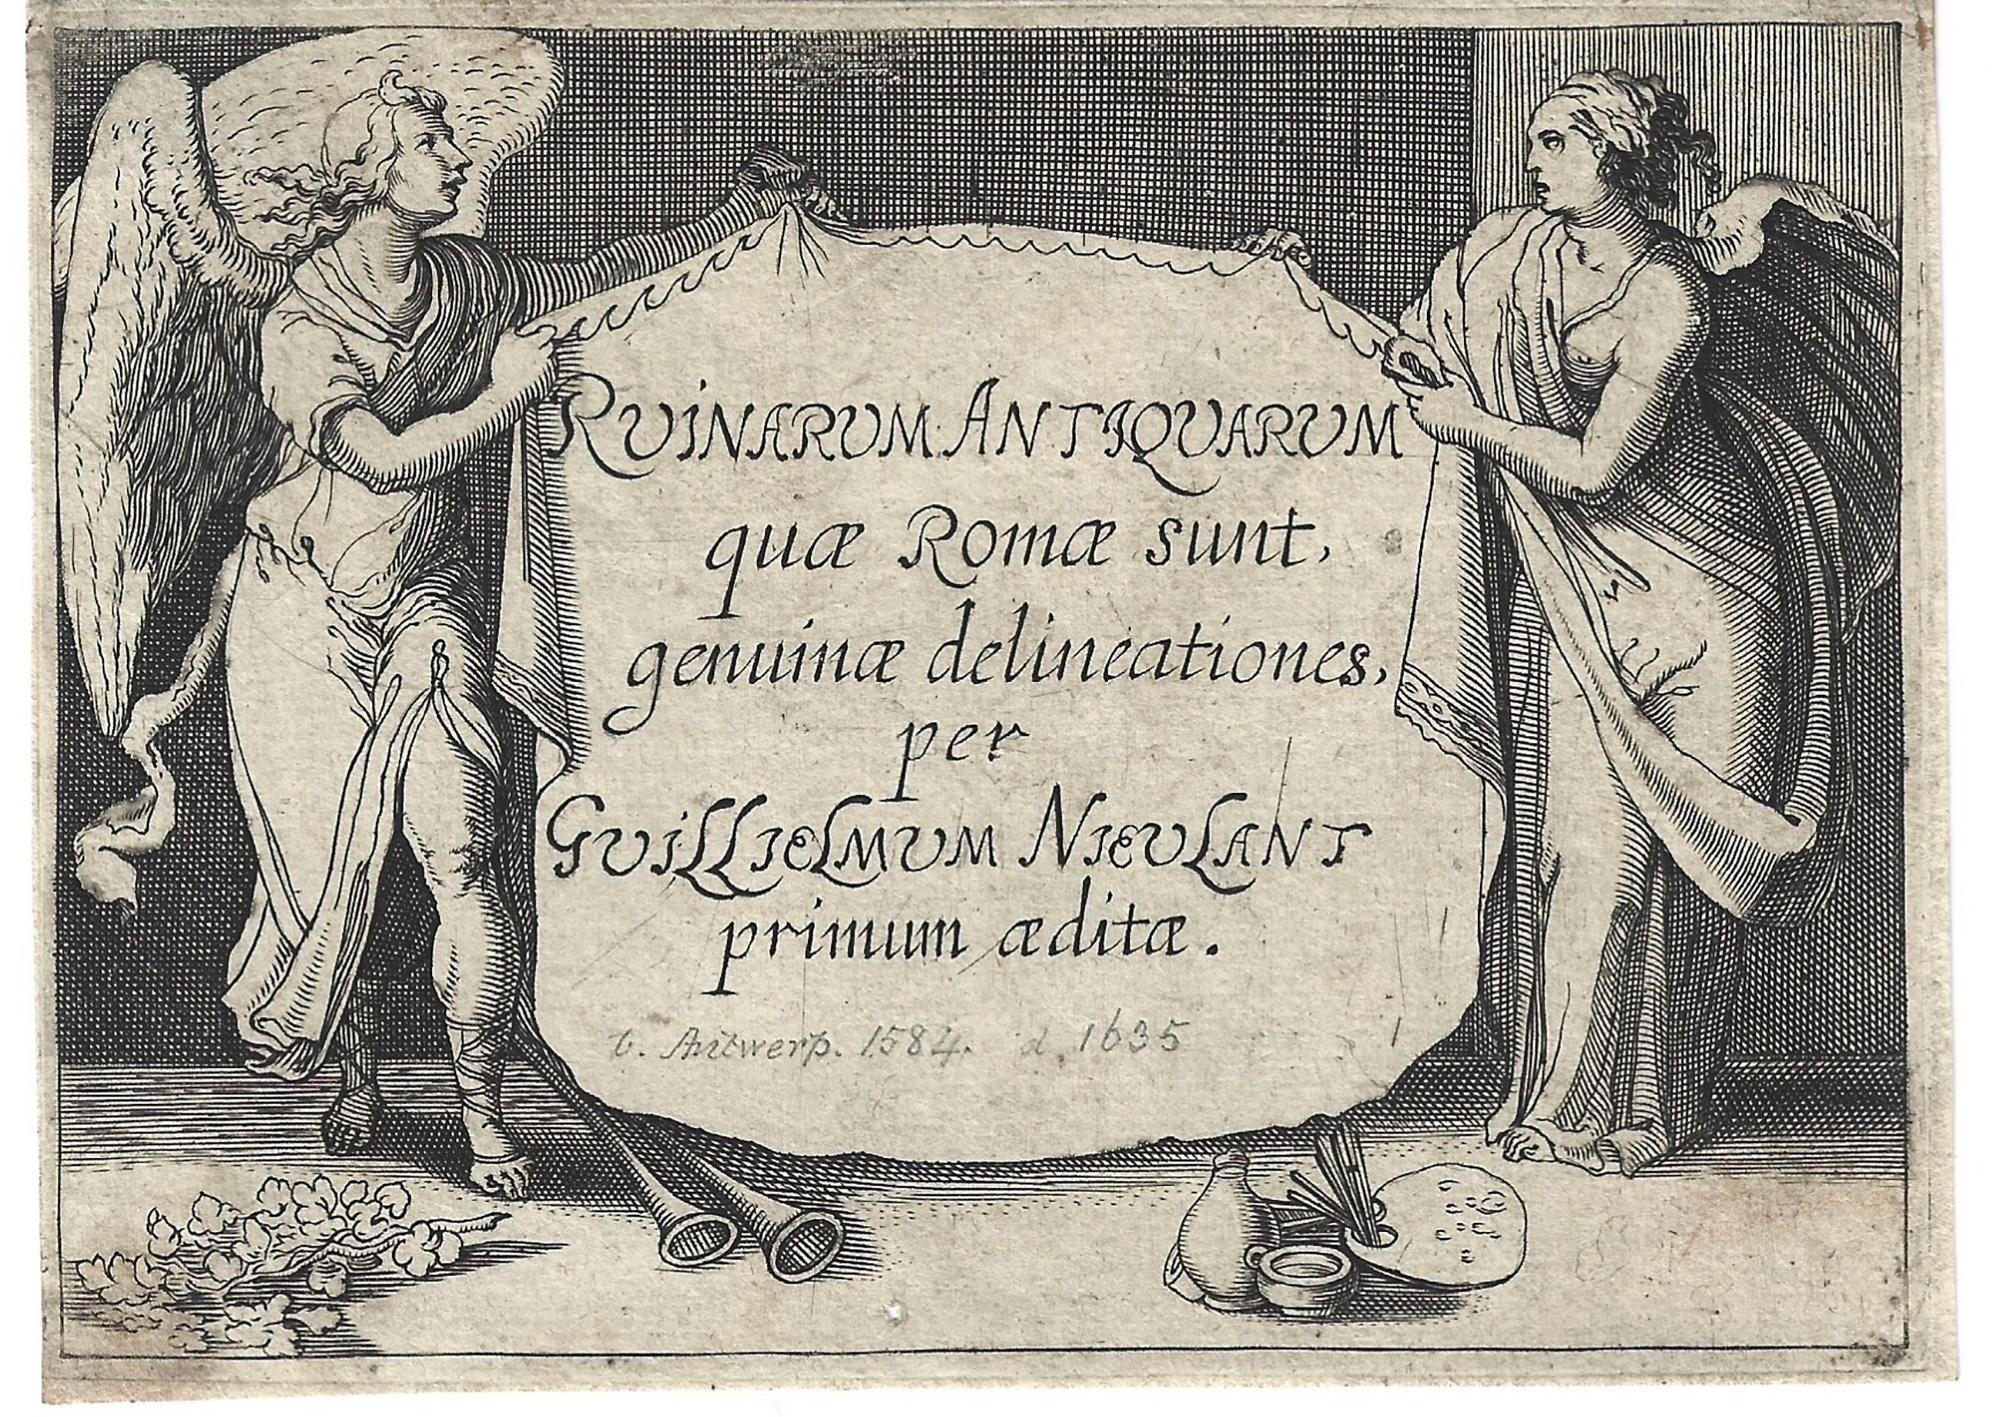 RUINARUM ANTIQUARUM
quæ Romæ sunt,
genuinæ delineationes,
per
GUILLIELMUM NIEULANT
primum æditæ.
b. Antwerp. 1584. d. 1635
1